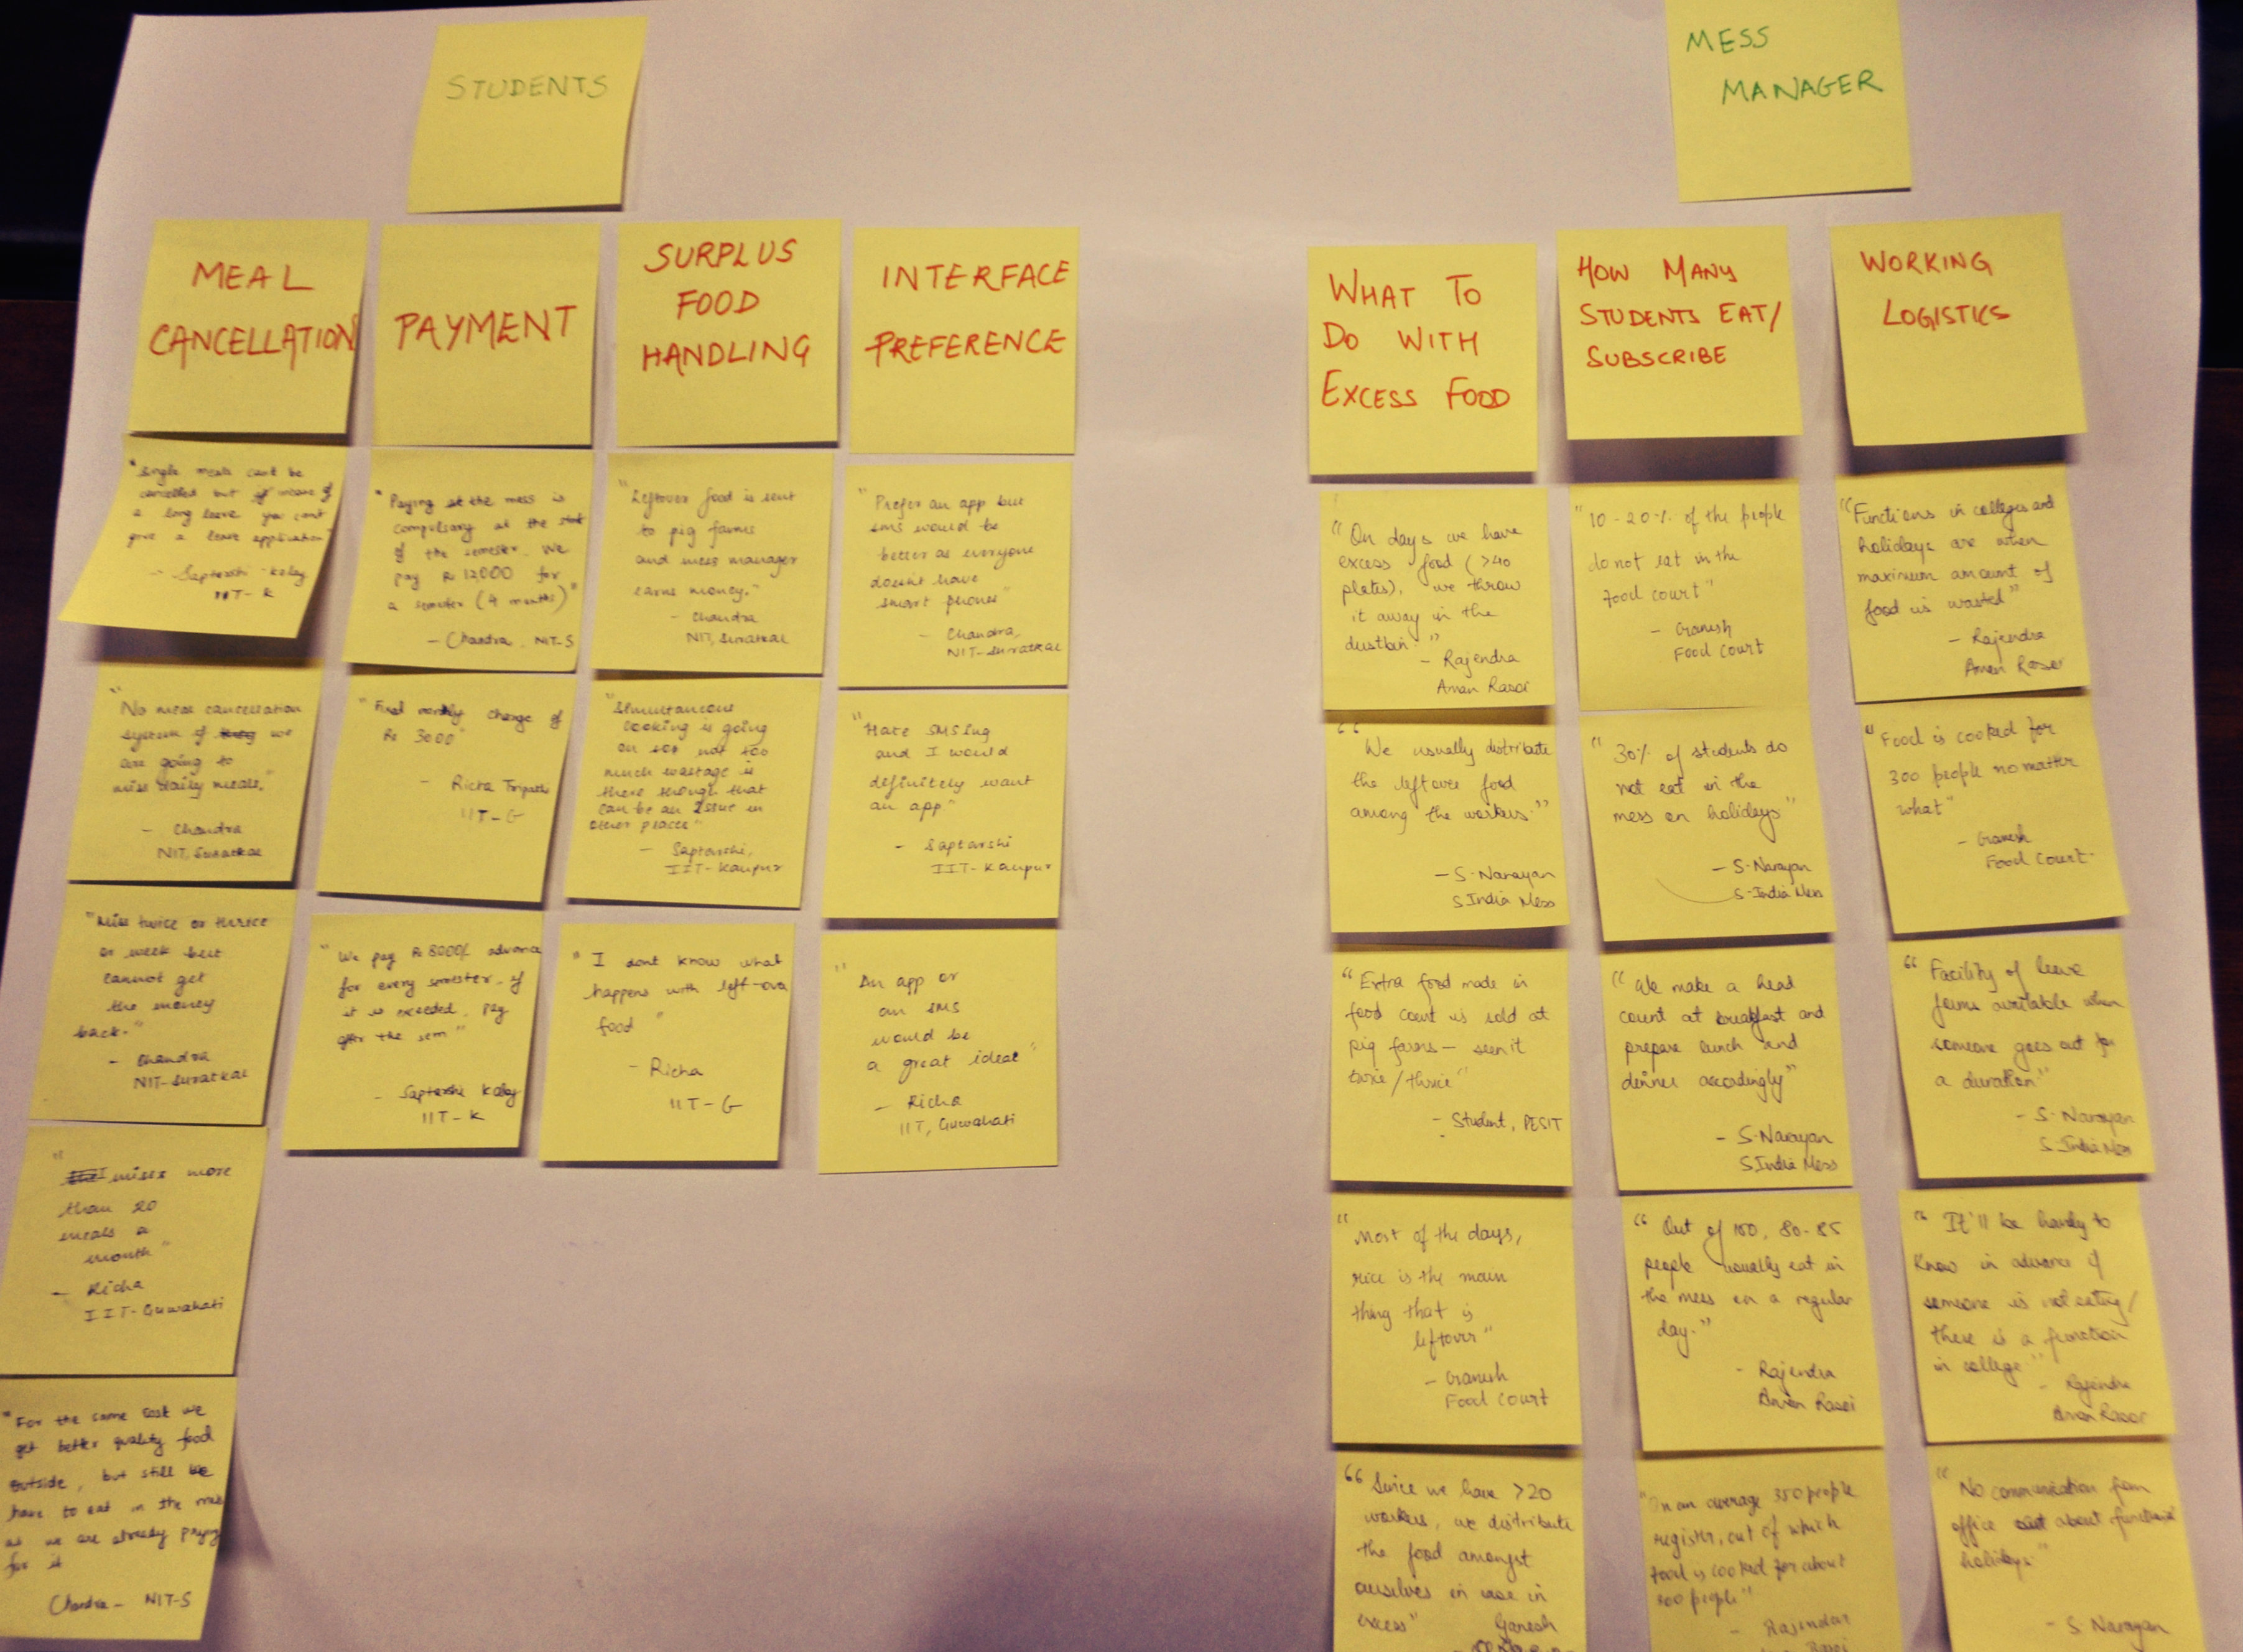 STUDENTS
MEAL
CANCELLATION
"Single meals cant be
cancelled but if incase of
a long leave you cant
give a leave application"
- Saptarshi
IIT-K
"No meal cancellation
system if we
are going to
miss daily meals."
- Chandra
NIT, Suratkal
"Miss twice or thrice
a week but
cannot get
the money
back."
- Chandra
NIT-Suratkal
"I miss more
than 20
meals a
month"
- Richa
IIT-Guwahati
"For the same cost we
get better quality food
outside, but still we
have to eat in the mess
as we are already paying
for it
Chandra- NIT-S
PAYMENT
"Paying at the mess is
compulsory at the
of the semester. We
pay Rs 12,000 for
a semester (4 months)"
- Chandra, NIT-S
"Fixed monthly charge of
Rs 3000"
- Richa Tripathi
IIT-G
"We pay Rs 8000/- advance
for every semester, if
it is exceeded, pay
after the sem"
- Saptarshi
IIT-K
SURPLUS
FOOD
HANDLING
"Leftover food is sent
to pig farms
and mess manager
earns money."
- Chandra
NIT, Suratkal
"Simultaneous
cooking is going
on not too
much wastage is
there though that
can be an issue in
other places"
- Saptarshi,
IIT-Kanpur
"I dont know what
happens with left-over
food"
- Richa
IIT-G
INTERFACE
PREFERENCE
"Prefer an app but
sms would be
better as everyone
doesnt have
smart phones"
- Chandra,
NIT-Suratkal
"Hate SMSing
and I would
definitely want
an app"
- Saptarshi
IIT-Kanpur
"An app or
an SMS
would be
a great idea"
- Richa
IIT, Guwahati
MESS
MANAGER
WHAT TO
DO WITH
EXCESS FOOD
"On days we have
excess food (>40
plates), we throw
it away in the
dustbin."
- Rajendra
Aman Rasoi
"We usually distribute
the leftover food
among the workers."
- S.Narayan
S.India Mess
"Extra food made in
food court is sold at
pig farms - seen it
twice/thrice"
- Student, PESIT
"Most of the days,
rice is the main
thing that is
leftover"
- Ganesh
Food Court
"Since we have >20
workers, we distribute
the food amongst
ourselves in case in
excess"
Ganesh
HOW MANY
STUDENTS EAT/
SUBSCRIBE
"10-20% of the people
do not eat in the
food court"
- Ganesh
Food Court
"30% of students do
not eat in the
mess on holidays"
- S.Narayan
S.India Mess
"We make a head
count at breakfast and
prepare lunch and
dinner accordingly"
- S.Narayan
S.India Mess
"Out of 100, 80-85
people usually eat in
the mess on a regular
day."
- Rajendra
Aman Rasoi
"On an average 350 people
register, out of which
food is cooked for about
300 people"
- Rajendar
Rasoi
WORKING
LOGISTICS
"Functions in colleges and
holidays are when
maximum amount of
food is wasted"
- Rajendra
Aman Rasoi
"Food is cooked for
300 people no matter
what"
- Ganesh
Food Court.
"Facility of leave
forms available when
someone goes out for
a duration"
- S.Narayan
S.India Mess
"It'll be handy to
know in advance if
someone is not eating/
there is a function
in college"
- Rajendra
Aman Rasoi
"No communication from
office about functions
holidays"
- S. Narayan